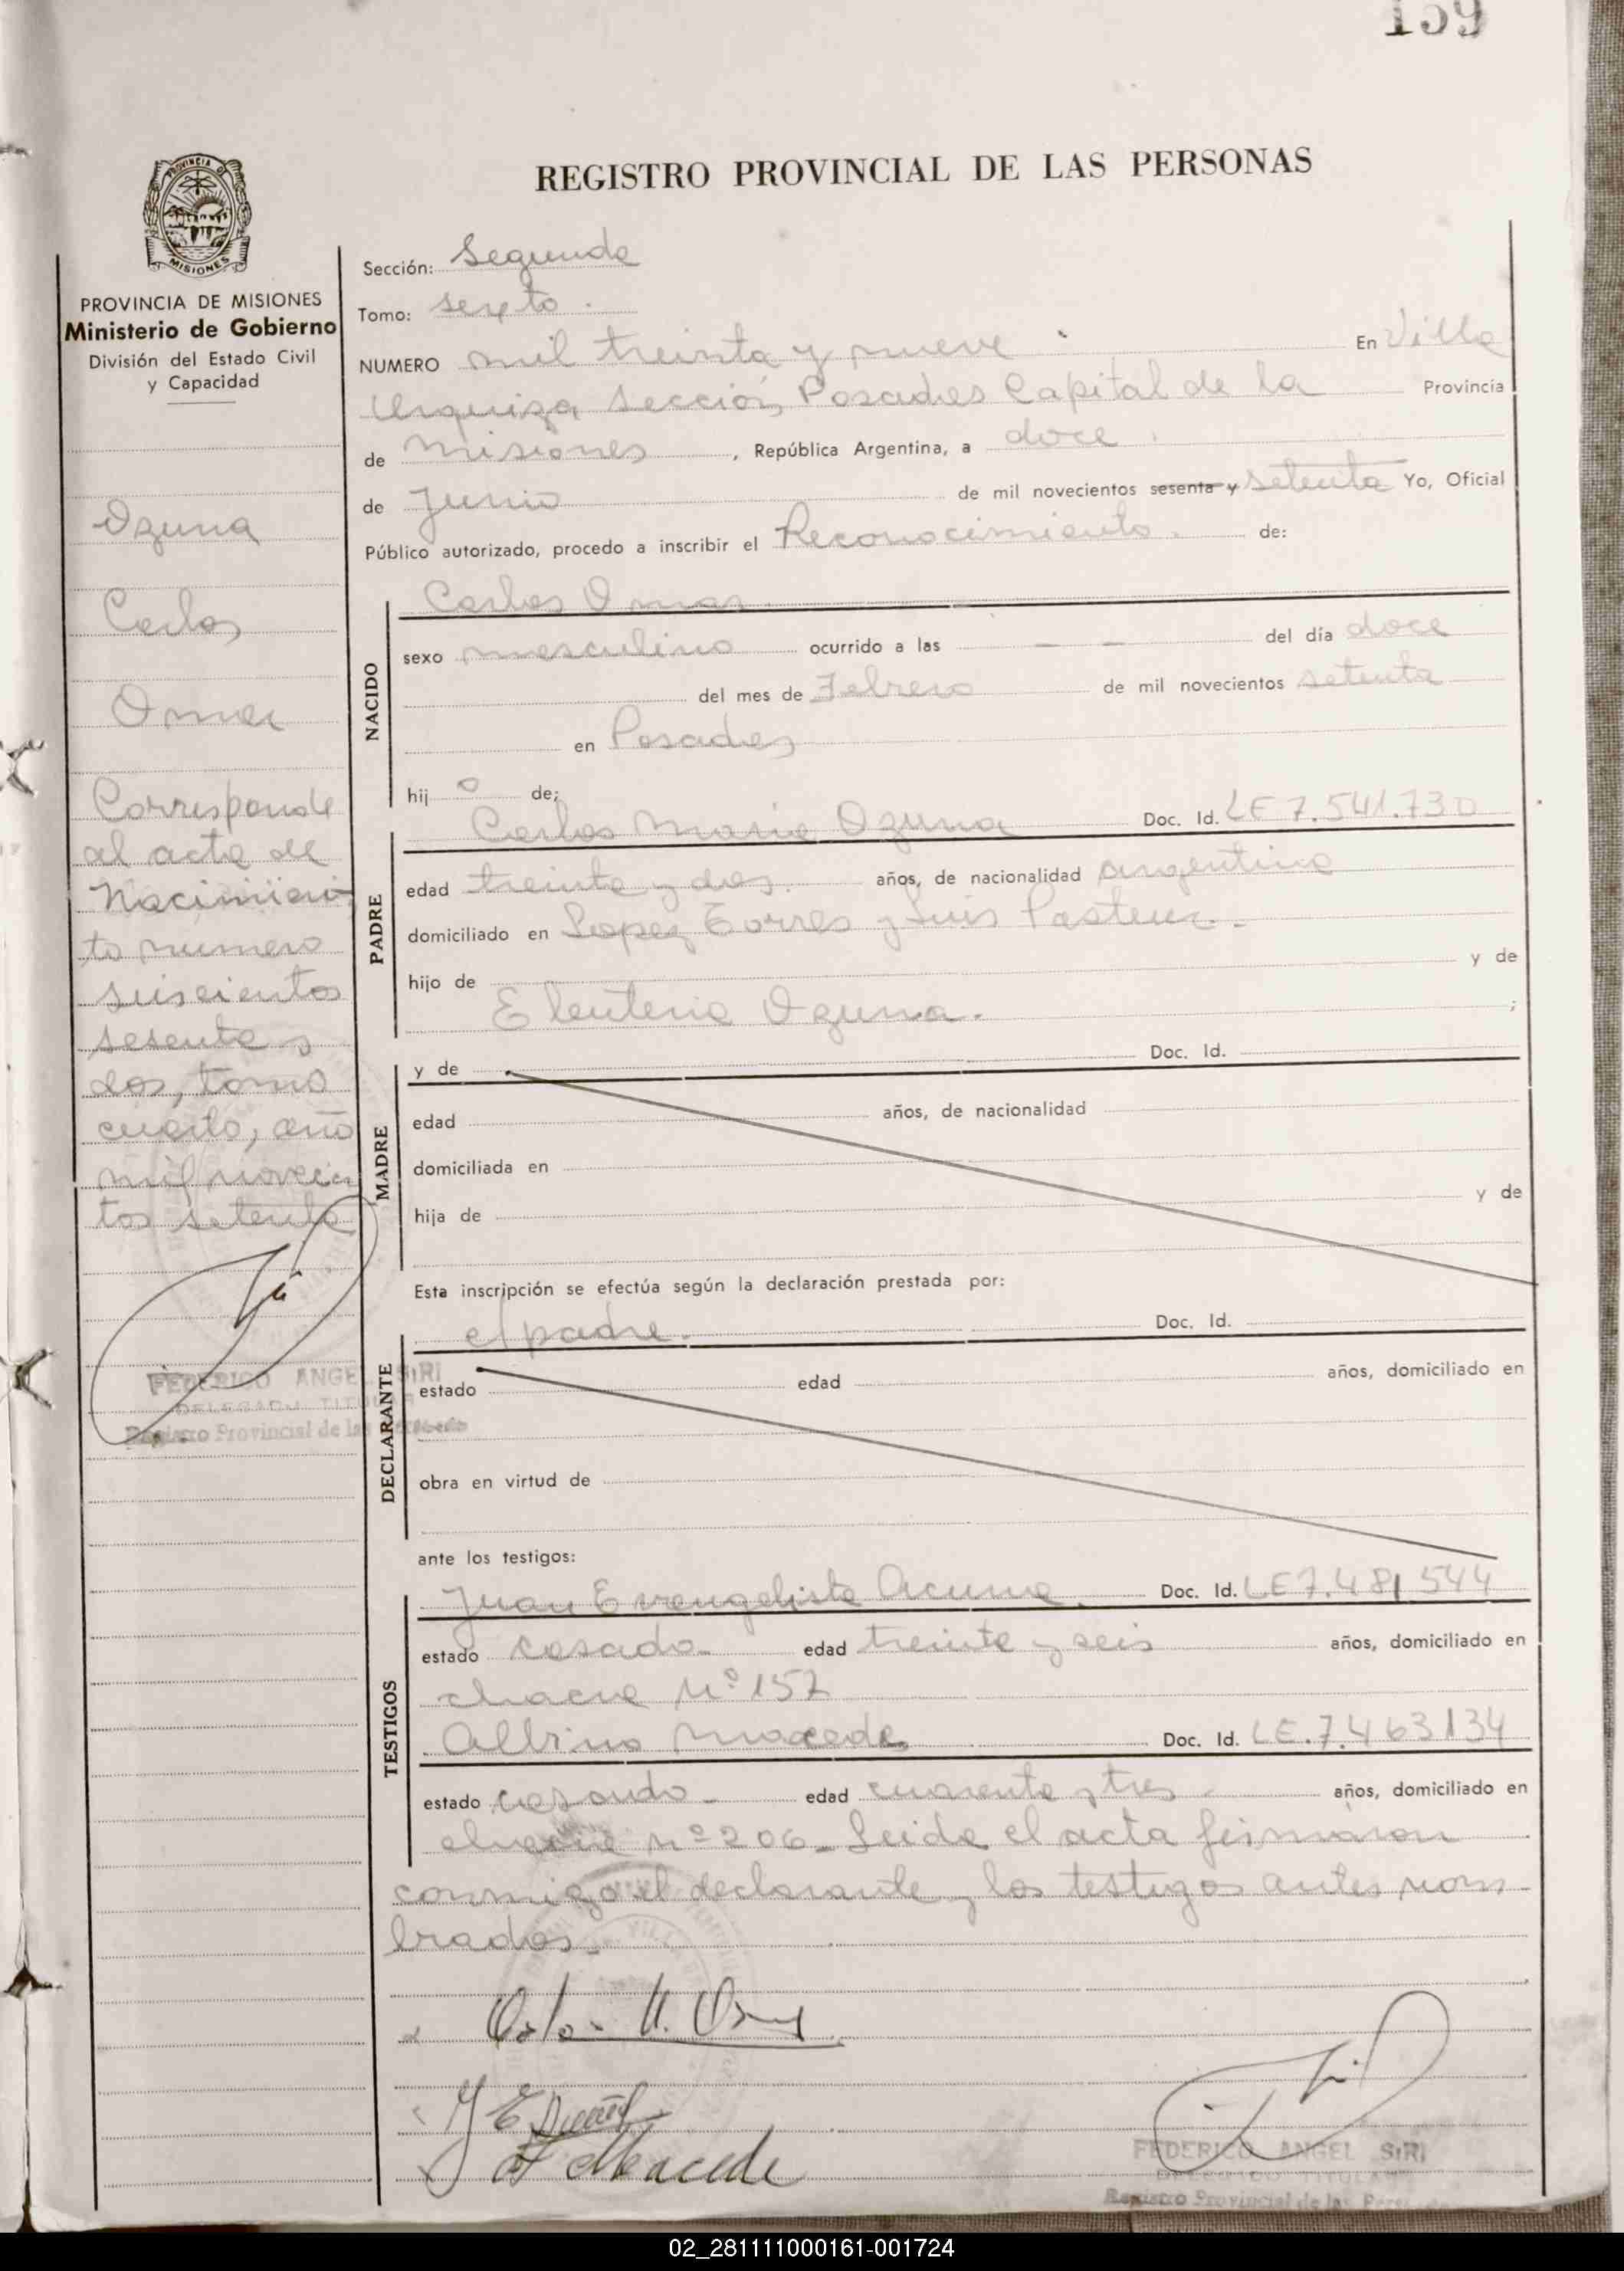 159
REGISTRO PROVINCIAL DE LAS PERSONAS
PROVINCIA DE MISIONES
Ministerio de Gobierno
División del Estado Civil
y Capacidad
Ozuna
Carlos
Omar
Corresponde
al acta de
Nacimien-
to numero
seiscientos
sesenta y
dos, tomo
cuarto, año
mil novecien
tos setenta
FEDERICO ANGEL SIRI
DELEGADO TITULAR
Registro Provincial de las Personas
Sección: Segunda
Tomo: sexto.
NUMERO mil treinta y nueve En Villa
Urquiza Sección, Posadas Capital de la Provincia
de Misiones, República Argentina, a doce
de Junio de mil novecientos sesenta y setenta Yo, Oficial
Público autorizado, procedo a inscribir el Reconocimiento. de:
NACIDO
Carlos Omar
sexo masculino ocurrido a las — — del día doce
del mes de Febrero de mil novecientos setenta
en Posadas
hijo de;
PADRE
Carlos Maria Ozuna Doc. Id. LE 7.541.730
edad treinta y dos. años, de nacionalidad argentina
domiciliado en Lopez Torres y Luis Pasteur.-
hijo de y de
Eleuteria Ozuna.- ;
MADRE
y de Doc. Id.
edad años, de nacionalidad
domiciliada en
hija de y de
Esta inscripción se efectúa según la declaración prestada por:
DECLARANTE
el padre. Doc. Id.
estado edad años, domiciliado en
obra en virtud de
ante los testigos:
TESTIGOS
Juan Evangelista Acuna. Doc. Id. LE 7.481544
estado casado- edad treinta y seis años, domiciliado en
chacra Nº 157
Albino Macedo Doc. Id. LE.7.463134
estado casado- edad cuarenta y tres- años, domiciliado en
chacra nº 206- Leida el acta firmaron
conmigo el declarante y los testigos antes nom
brados.-
FEDERICO ANGEL SIRI
DELEGADO TITULAR
Registro Provincial de las Personas
02_281111000161-001724